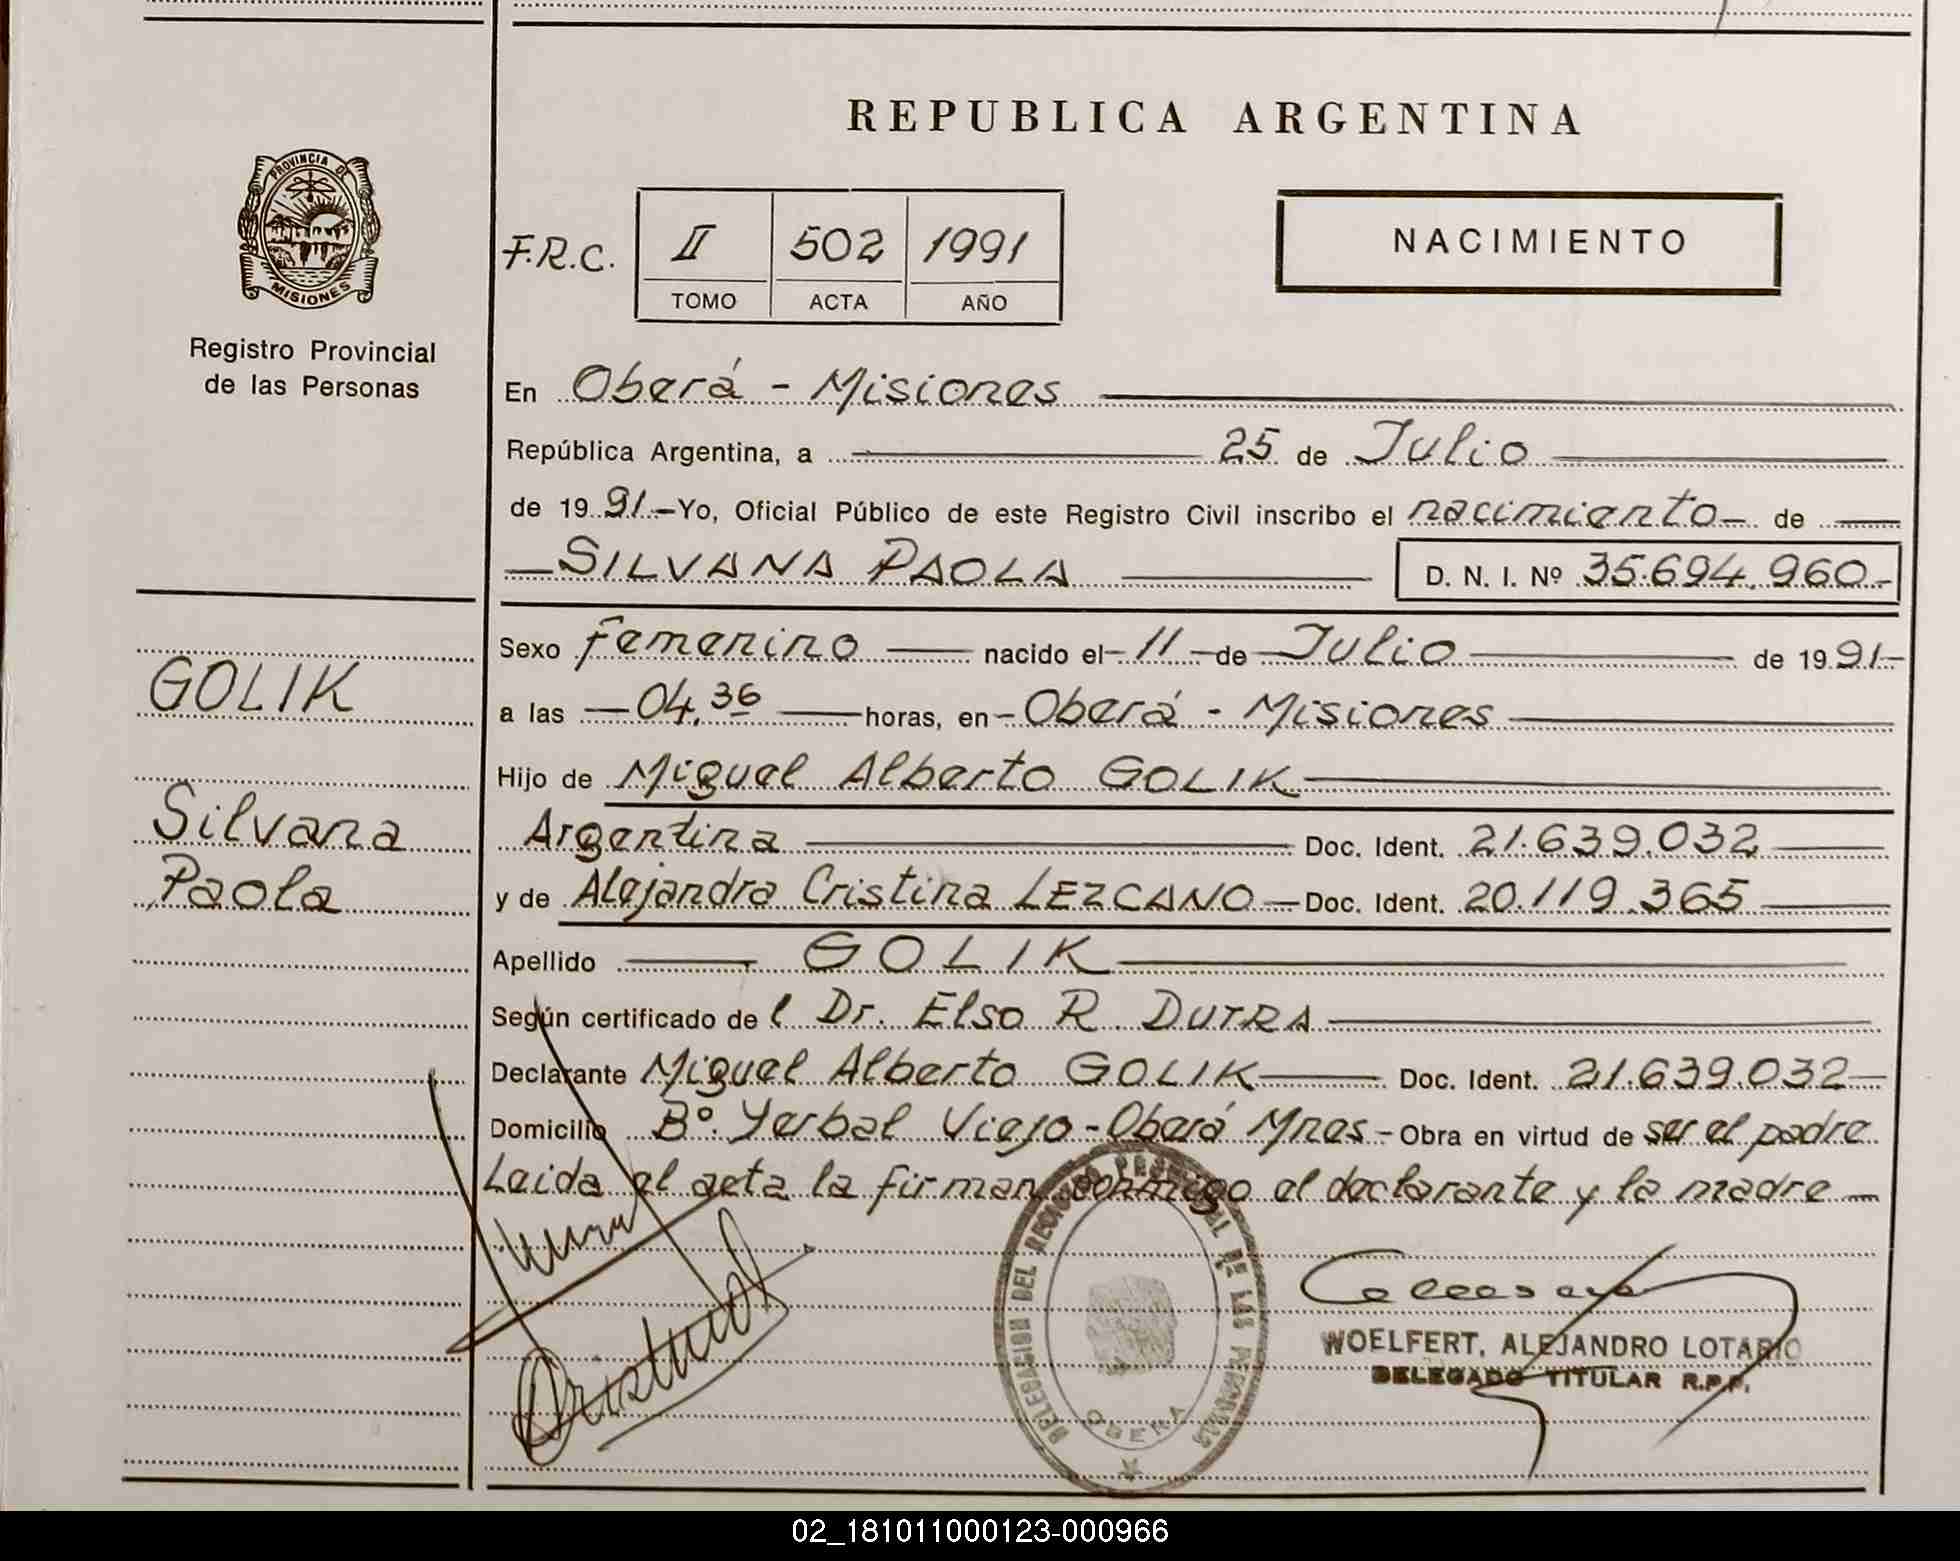 REPUBLICA ARGENTINA
PROVINCIA DE
MISIONES
Registro Provincial
de las Personas
F.R.C.
II 502 1991
TOMO ACTA AÑO
NACIMIENTO
En Oberá - Misiones
República Argentina, a 25 de Julio
de 1991.- Yo, Oficial Público de este Registro Civil inscribo el nacimiento de
SILVANA PAOLA D. N. I. Nº 35.694.960-
GOLIK
Silvana
Paola
Sexo femenino nacido el 11 de Julio de 1991-
a las 04,36 horas, en Oberá - Misiones
Hijo de Miguel Alberto GOLIK
Argentina Doc. Ident. 21.639.032
y de Alejandra Cristina LEZCANO Doc. Ident. 20.119.365
Apellido GOLIK
Según certificado de l Dr. Elso R. DUTRA
Declarante Miguel Alberto GOLIK Doc. Ident. 21.639.032
Domicilio Bº. Yerbal Viejo - Oberá Mnes - Obra en virtud de ser el padre
Leida el acta la firman conmigo el declarante y la madre
DELEGACION DEL REGISTRO PROVINCIAL DE LAS PERSONAS
OBERA
WOELFERT, ALEJANDRO LOTARIO
DELEGADO TITULAR R.P.P.
02_181011000123-000966